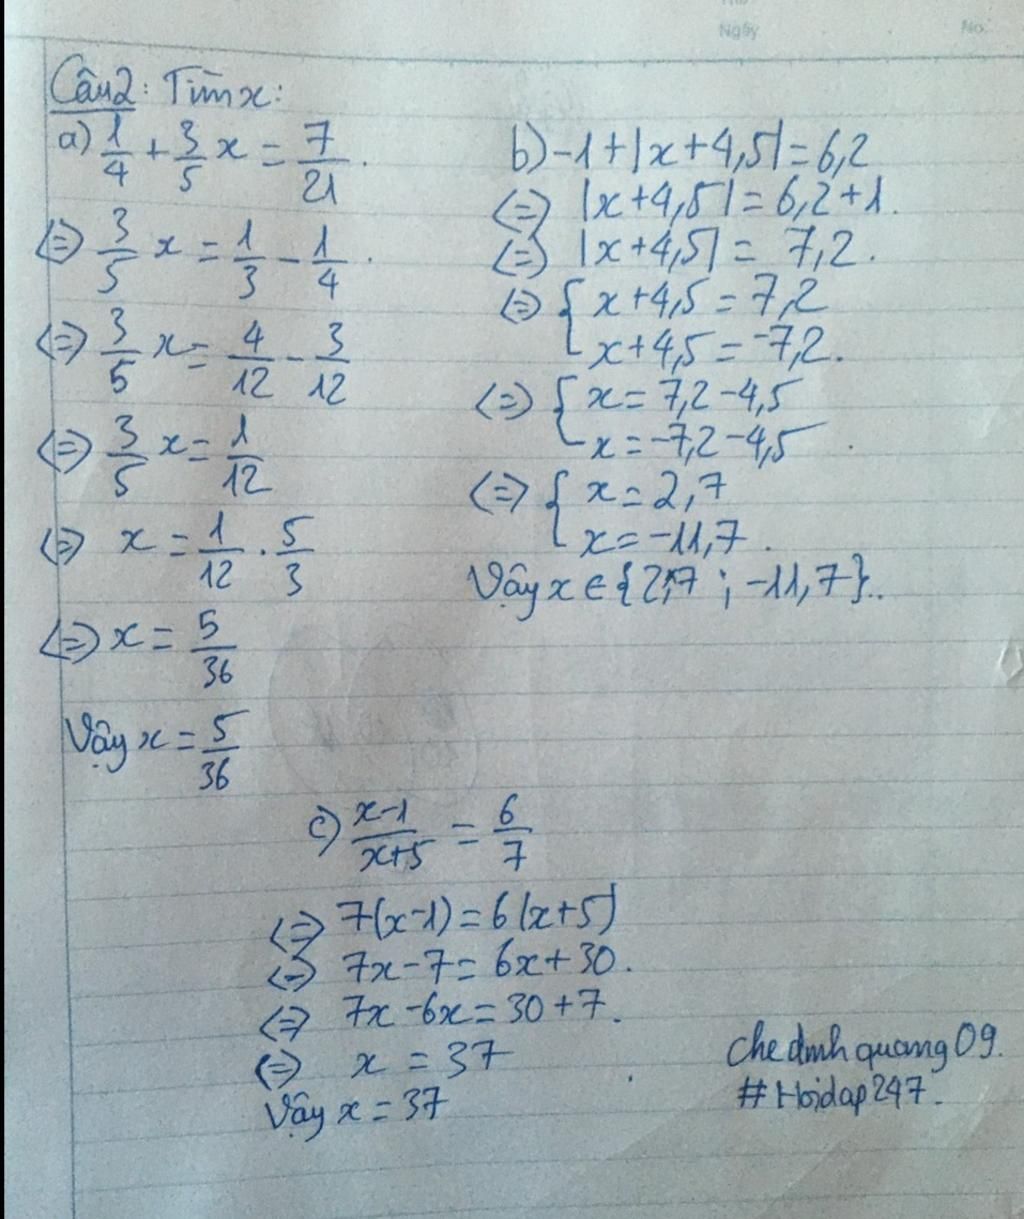 Ngày
No.
Câu2: Tìm x:
a) 1/4 + 3/5 x = 7/21.
<=> 3/5 x = 1/3 - 1/4.
<=> 3/5 x = 4/12 - 3/12
<=> 3/5 x = 1/12
<=> x = 1/12 . 5/3
<=> x = 5/36
Vậy x = 5/36
b) -1+|x+4,5|=6,2
<=> |x+4,5|=6,2+1.
<=> |x+4,5| = 7,2.
<=> { x+4,5 = 7,2
x+4,5 = -7,2.
<=> { x = 7,2-4,5
x = -7,2-4,5
<=> { x = 2,7
x = -11,7.
Vậy x ∈ {2,7 ; -11,7}..
c) x-1/x+5 = 6/7
<=> 7(x-1) = 6(x+5)
<=> 7x-7 = 6x+30.
<=> 7x-6x = 30+7.
<=> x = 37
Vậy x = 37
chedinhquang09.
#Hoidap247.